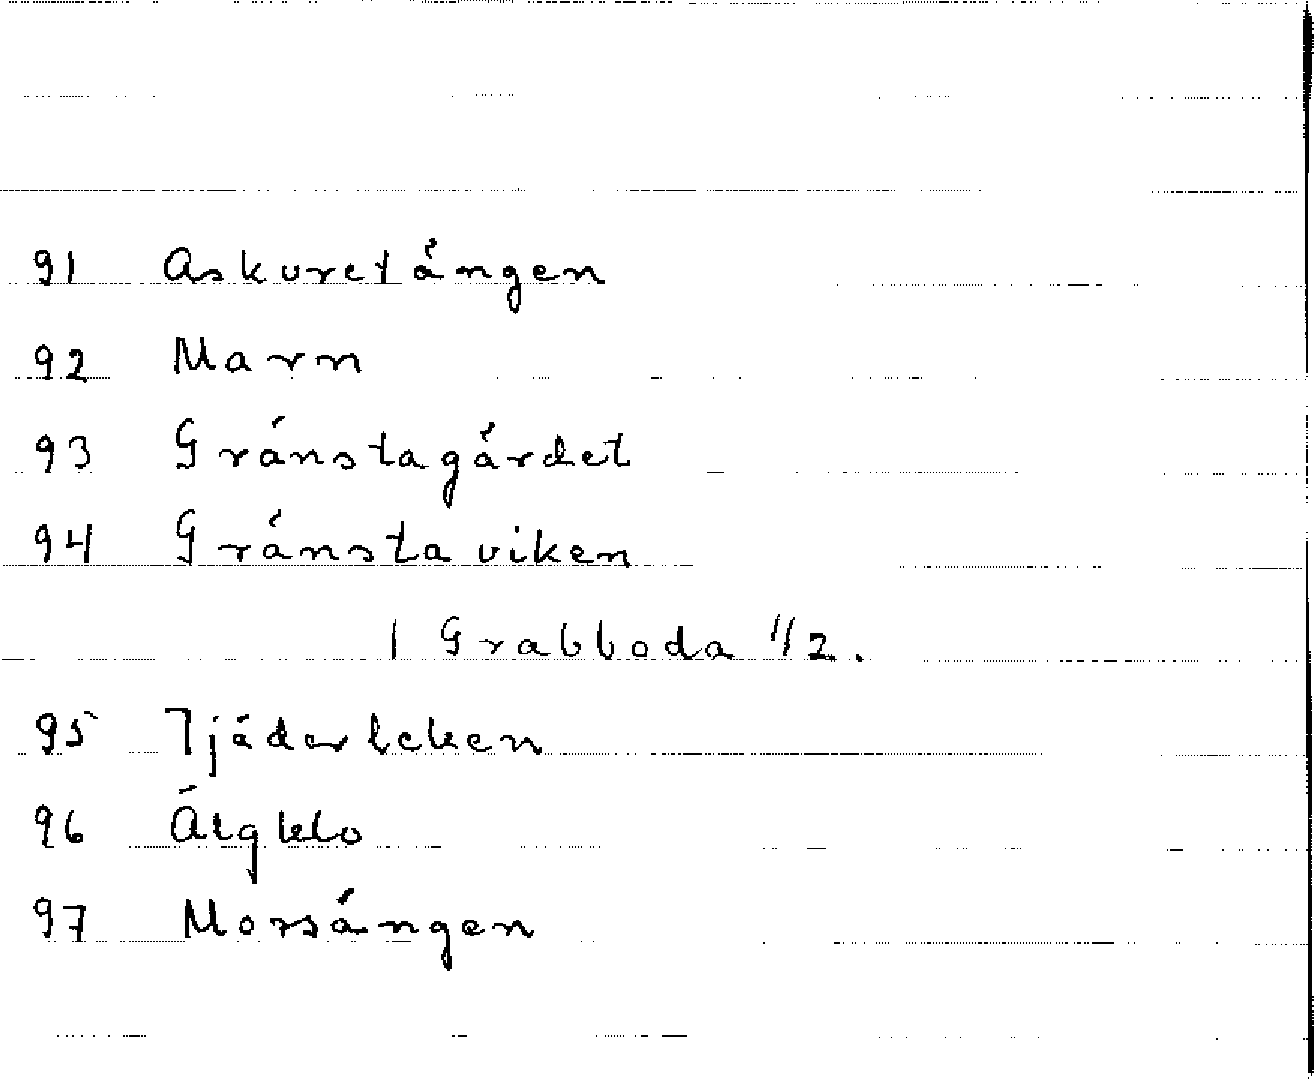 91 Askuretängen
92 Marn
93 Gränstagärdet
94 Gränsta viken
I Grabboda 1/2.
95 Tjäderleken
96 Älgklo
97 Morsängen